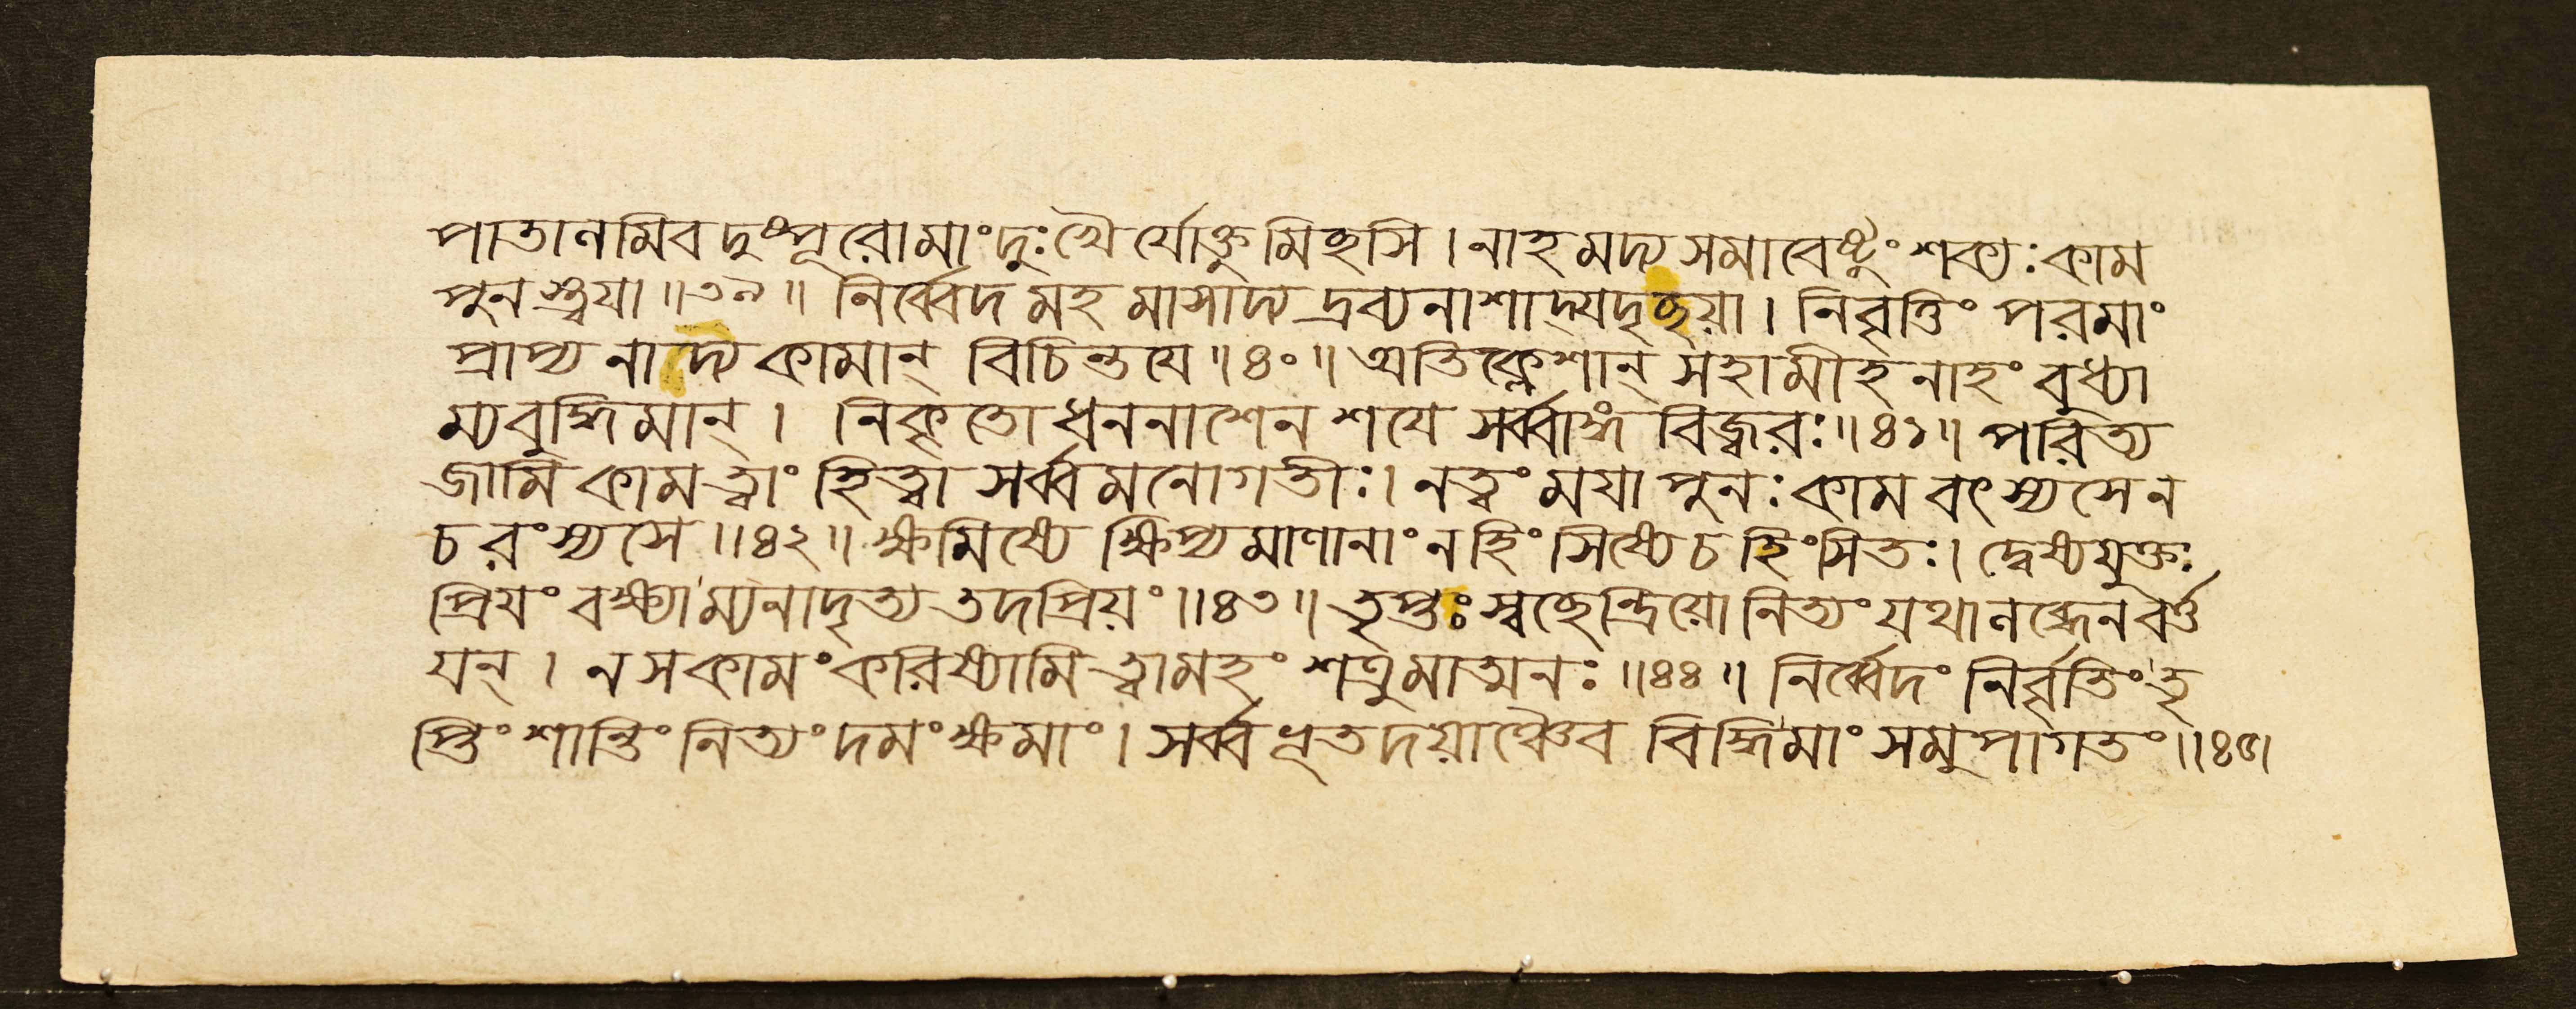 পাতালমিবদুষ্পূরোমাংদুঃখৈর্যোক্তুমিচ্ছসি।নাহমদ্যসমাবেষ্টুংশক্যঃকাম
পুনস্ত্বয়া॥৩৯॥ নির্ব্বেদমহমাসাদ্যদ্রব্যনাশাদ্যদৃচ্ছয়া। নির্বৃত্তিং পরমাং
প্রাপ্য নাদ্য কামান্ বিচিন্তয়ে॥৪০॥ অতিক্লেশান্ সহামীহনাহং বুধ্যা
ম্যবুদ্ধিমান্। নিকৃতোধননাশেনশয়ে সর্ব্বাঙ্গ বিজ্বরঃ॥৪১॥ পরিত্য
জামি কামত্বাং হিত্বা সর্ব্বমনোগতীঃ।নত্বংময়াপুনঃকামবৎস্যসেন
চরংস্যসে॥৪২॥ ক্ষমিষ্যে ক্ষিপ্যমাণানাংনহিংসিষ্যেচহিংসিতঃ।দ্বেষ্যযুক্তঃ
প্রিয়ংবক্ষ্যাম্যনাদৃত্যতদপ্রিয়ং॥৪৩॥ তৃপ্তঃস্বচ্ছেন্দ্রিয়োনিত্যংযথালব্ধেনবর্ত্ত
য়ন্। নসকামংকরিষ্যামিত্বামহং শত্রুমাত্মনঃ॥৪৪॥ নির্ব্বেদং নির্বৃত্তিংতৃ
প্তিংশান্তিংনিত্যংদমংক্ষমাং।সর্ব্বভূতদয়াঞ্চৈব বিদ্ধিমাংসমুপাগতং॥৪৫।